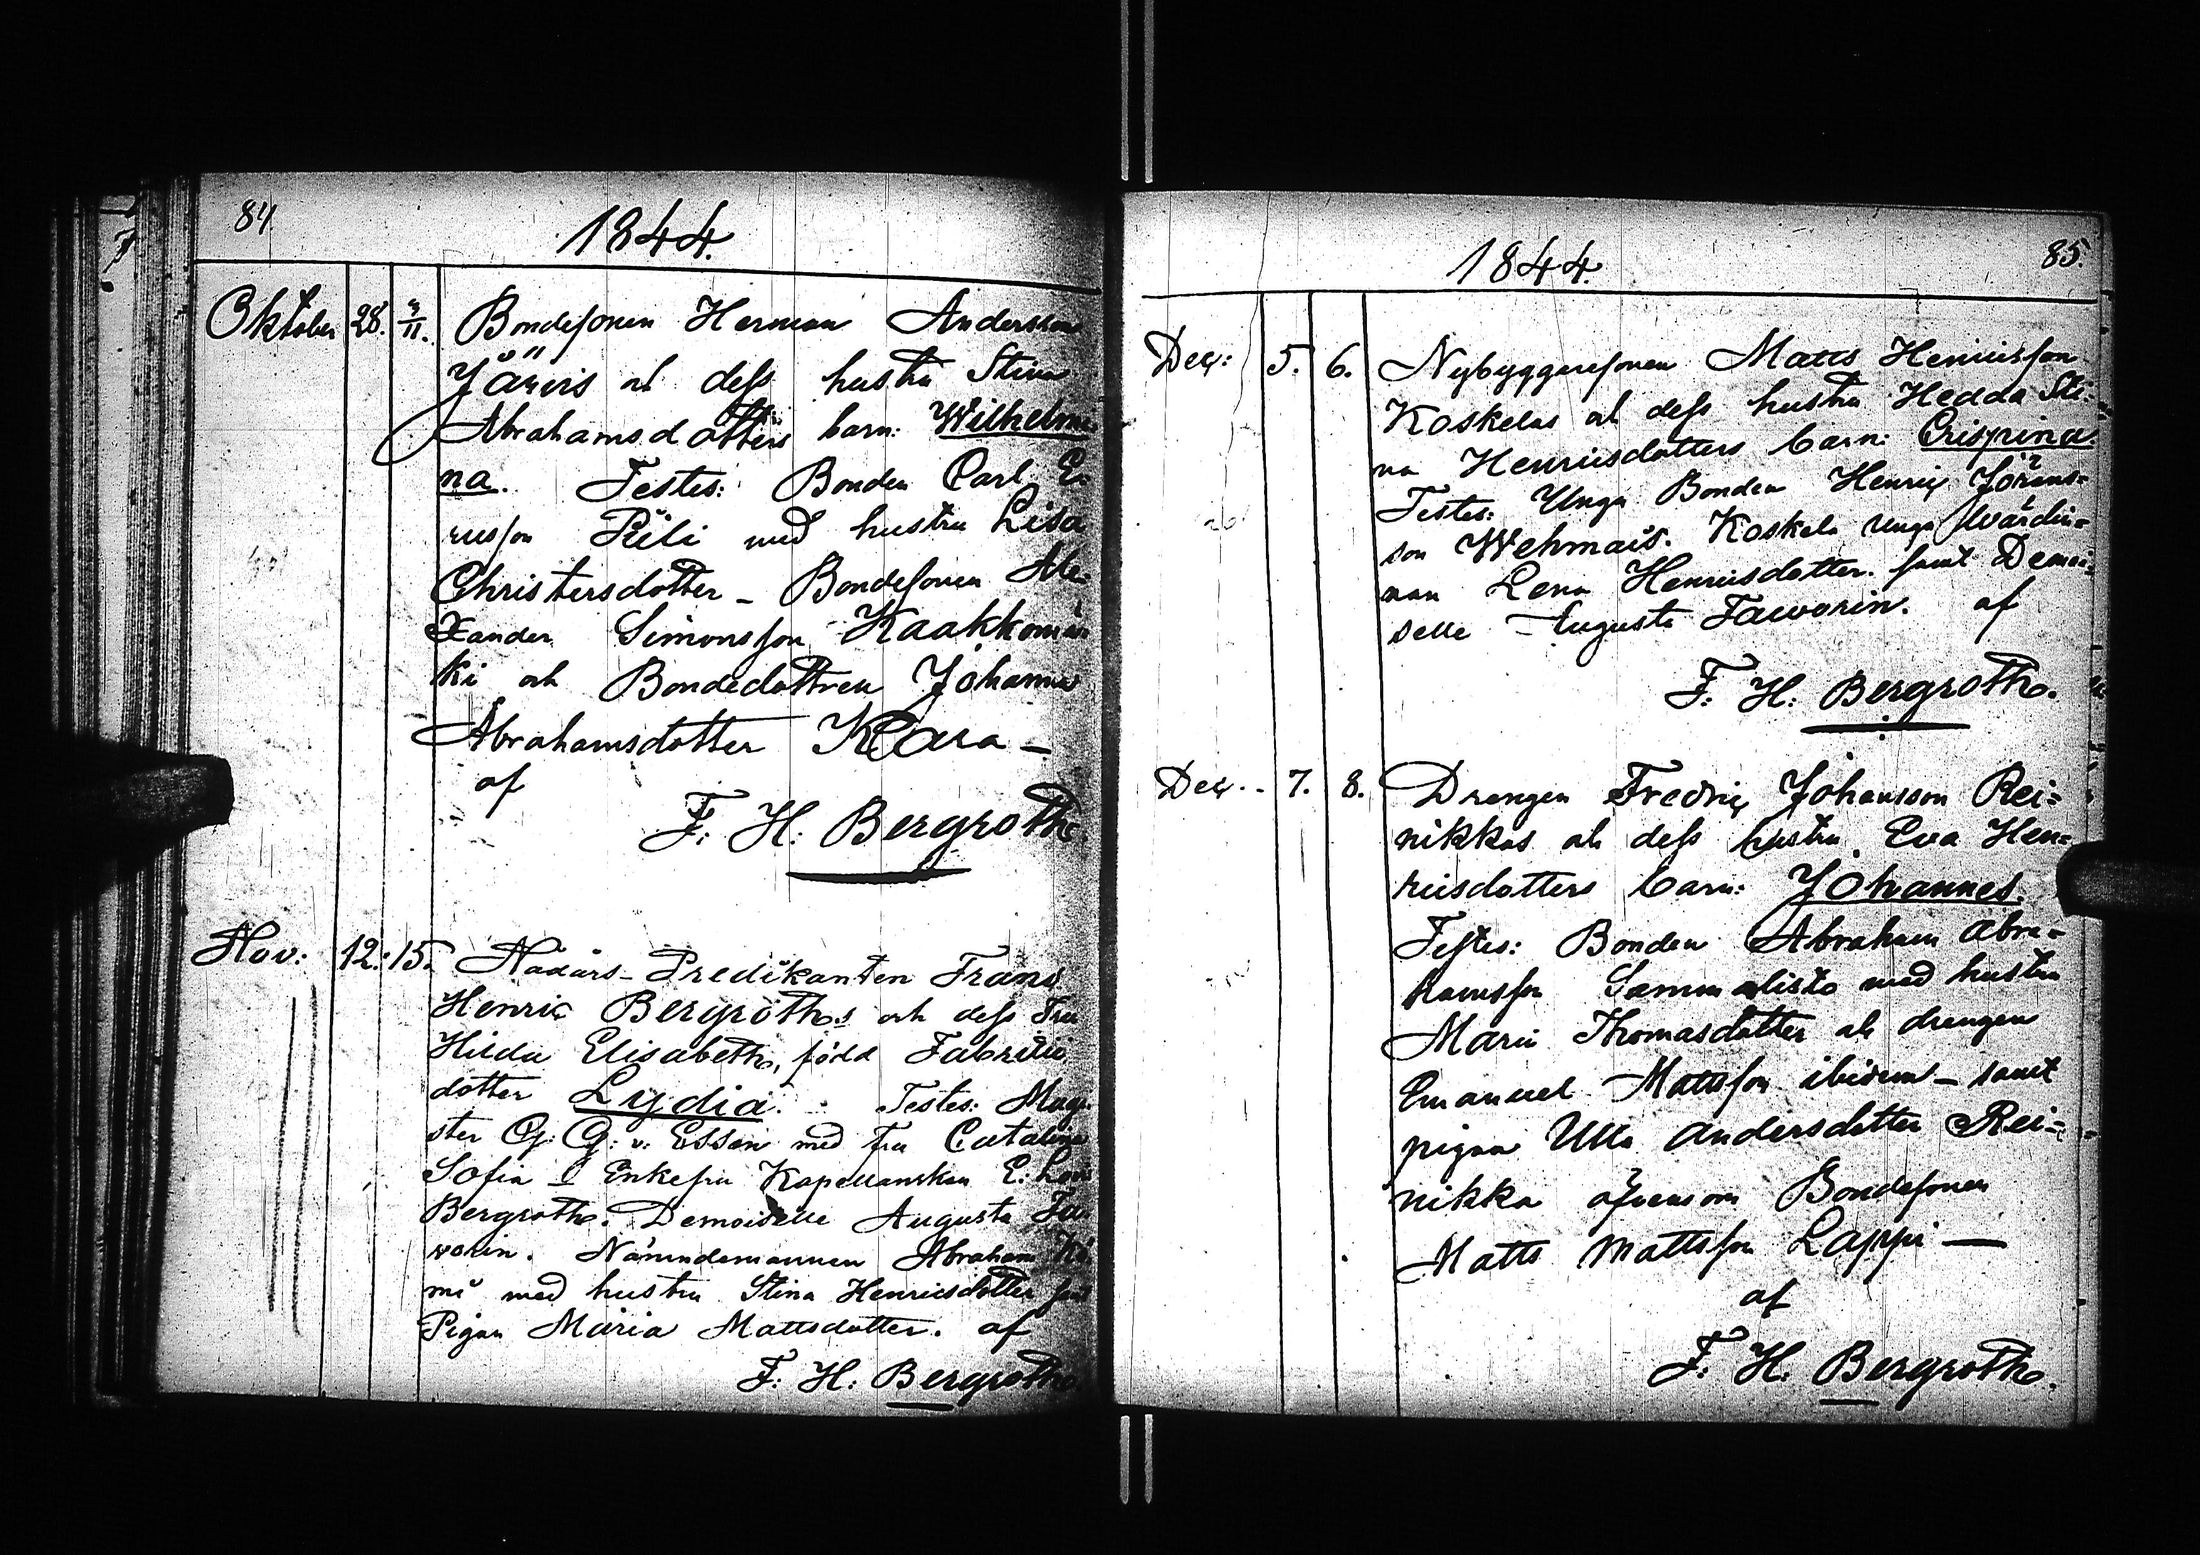 84.
1844.
Oktober 28. 3/11. Bondesonen Herman Andersson
Järvis och dess hustru Stina
Abrahamsdotters barn: Wilhelmi-
na. Testes: Bonden Carl E-
ricsson Pili med hustru Lisa
Christersdotter – Bondesonen Ale-
xander Simonsson Kaakkomä-
ki och Bondedottren Johanna
Abrahamsdotter Klara –
af
F. H: Bergroth.
Nov: 12: 15. Nådårs-Predikanten Frans
Henric Bergroths och dess Fru
Hilda Elisabeth, född Fabritii
dotter Lydia. Testes: Magi-
ster G: G: v. Essen med Fru Catalina
Sofia – Enkefru Kapellanskan E: Lovis
Bergroth. Demoiselle Augusta Fa-
vorin. Nämndemannen Abraham
med hustru Stina Henricsdotter samt
Pigan Maria Mattsdotter. af
F: H: Bergroth
1844.
85.
Dec: 5. 6. Nybyggaresonen Matts Henricsson
Koskelas och dess hustru Hedda Sti-
na Henricsdotters barn: Crispina.
Testes: Unga Bonden Henric Jörans-
son Wehmais. Koskela unga Wärdin-
nan Lena Henricsdotter. samt Demoi-
selle Augusta Faworin. af
F. H: Bergroth.
Dec. 7. 8. Drengen Fredric Johansson Rei-
nikkas och dess hustru Eva Hen-
ricsdotters barn: Johannes.
Testes: Bonden Abraham Abra-
hamsson Sammalisto med hustru
Maria Thomasdotter och drengen
Emanuel Mattsson ibidem – samt
pigan Ulla Andersdotter Rei-
nikka äfvensom Bondesonen
Matts Mattsson Lappi –
af
F. H. Bergroth.